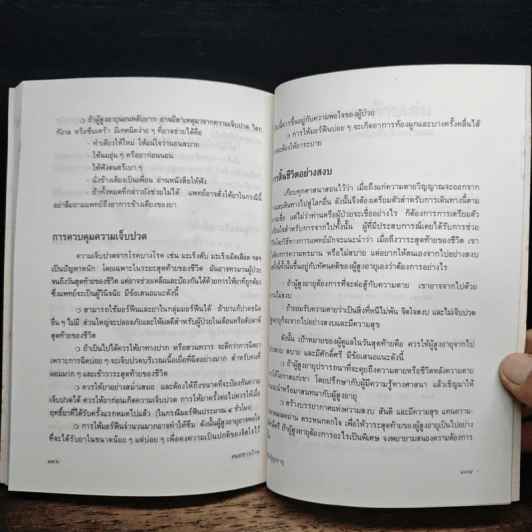 ถ้าผู้สูงอายุนอนหลับยาก อาจมีสาเหตุมาจากความเจ็บปวด วิตก
กังวล หรือซึมเศร้า มีเทคนิคง่าย ๆ ที่อาจช่วยได้คือ
- ทำเตียงให้ใหม่ ให้แน่ใจว่านอนสบาย
- ให้นมอุ่น ๆ หรือยาก่อนนอน
- ให้ฟังดนตรีเบา ๆ
- นั่งข้างเตียงเป็นเพื่อน อ่านหนังสือให้ฟัง
- ถ้าทั้งหมดที่กล่าวยังช่วยไม่ได้ แพทย์อาจสั่งยาให้ในกรณีนี้
อย่าลืมถามแพทย์ถึงอาการข้างเคียงของยา
การควบคุมความเจ็บปวด
ความเจ็บปวดจากโรคบางโรค เช่น มะเร็งตับ มะเร็งเม็ดเลือด ฯลฯ
เป็นปัญหาหนัก โดยเฉพาะในระยะสุดท้ายของชีวิต มันอาจทรมานผู้ป่วย
จนถึงวันสุดท้ายของชีวิต แต่อาจช่วยเหลือและป้องกันได้ด้วยการให้ยาที่ถูกต้อง
ซึ่งแพทย์จะเป็นผู้วินิจฉัย มีข้อเสนอแนะดังนี้
สามารถใช้มอร์ฟีนและยาในกลุ่มมอร์ฟีนได้ ถ้ายาแก้ปวดชนิด
อื่น ๆ ไม่มี ส่วนใหญ่จะปลอดภัยและให้ผลดีสำหรับผู้ป่วยในเดือนหรือสัปดาห์
สุดท้ายของชีวิต
ถ้าเป็นไปได้ควรให้ยาทางปาก หรือสวนทวาร จะดีกว่าการฉีดยา
เพราะการฉีดบ่อย ๆ จะเจ็บปวดบริเวณเนื้อเยื่อที่ฉีดอย่างมาก สำหรับคนที่
ผอมมาก ๆ และเข้าวาระสุดท้ายของชีวิต
ควรให้ยาอย่างสม่ำเสมอ และต้องให้ถึงขนาดที่จะป้องกันความ
เจ็บปวดได้ ควรให้ยาก่อนเกิดความเจ็บปวด การให้ยาครั้งต่อไปควรให้เมื่อ
ฤทธิ์ยาที่ได้รับครั้งแรกหมดไปแล้ว (ในกรณีมอร์ฟีนประมาณ ๔ ชั่วโมง)
การให้มอร์ฟีนจำนวนมากอาจทำให้ซึม ดังนั้นผู้สูงอายุอาจพอใจ
ที่จะได้รับยาในขนาดน้อย ๆ แต่บ่อย ๆ เพื่อคงความเป็นปกติของจิตใจไว้
๑๓๖
หมอชาวบ้าน
ขึ้นอยู่กับความพอใจของผู้ป่วย
การให้มอร์ฟีนบ่อย ๆ จะเกิดอาการท้องผูกและบางครั้งคลื่นไส้
จะต้องให้ยาระบาย
ชีวิตอย่างสงบ
เกือบทุกศาสนาสอนไว้ว่า เมื่อถึงแก่ความตายวิญญาณจะออกจาก
และเดินทางไปสู่โลกอื่น ดังนั้นจึงต้องเตรียมตัวสำหรับการเดินทางนี้ตาม
แต่ไม่ว่าท่านหรือผู้ป่วยจะเชื่ออย่างไร ก็ต้องการการเตรียมตัว
สำหรับการจากไปทั้งนั้น ผู้ที่มีประสบการณ์เคยได้รับการช่วย
โดยวิธีทางการแพทย์มักจะแนะนำว่า เมื่อถึงวาระสุดท้ายของชีวิต เขา
ให้เกิดความทรมาน หรือไม่สบาย แต่อยากให้ตนเองจากไปอย่างสงบ
ทั้งนี้ขึ้นอยู่กับทัศนคติของผู้สูงอายุเองว่าต้องการอย่างไร
- ถ้าผู้สูงอายุต้องการที่จะต่อสู้กับความตาย เขาอาจจากไปด้วย
ไม่สงบ
- ถ้ายอมรับความตายว่าเป็นสิ่งที่หนีไม่พ้น จิตใจสงบ และไม่เจ็บปวด
อายุก็จะจากไปอย่างสงบและมีความสุข
ดังนั้น เป้าหมายของผู้ดูแลในวันสุดท้ายคือ ควรให้ผู้สูงอายุจากไป
สงบ สบาย และมีศักดิ์ศรี มีข้อเสนอแนะดังนี้
ถ้าผู้สูงอายุปรารถนาที่จะคุยถึงความตายหรือชีวิตหลังความตาย
ให้โอกาสแก่เขา โดยปรึกษากับผู้มีความรู้ทางศาสนา แล้วเชิญมาให้
หรือนำมาสนทนากับผู้สูงอายุ
สร้างบรรยากาศแห่งความสงบ สันติ และมีความสุข แทนความ-
ตระหนกตกใจ เพื่อให้วาระสุดท้ายของผู้สูงอายุเป็นไปอย่าง
ถ้าผู้สูงอายุต้องการอะไรเป็นพิเศษ จงพยายามสนองความต้องการ
๑๓๗